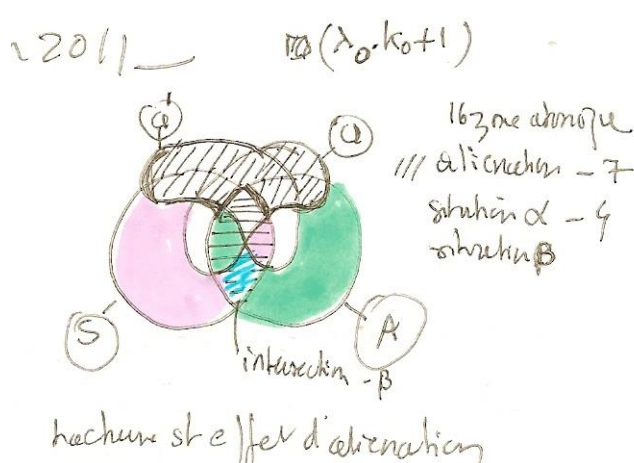 2011
(λ₀.k₀+1)
a'
a
16 zone atomique
/// aliénation - 7
situation α - 4
situation β
S
A
intersection - β
hachure st effet d'aliénation